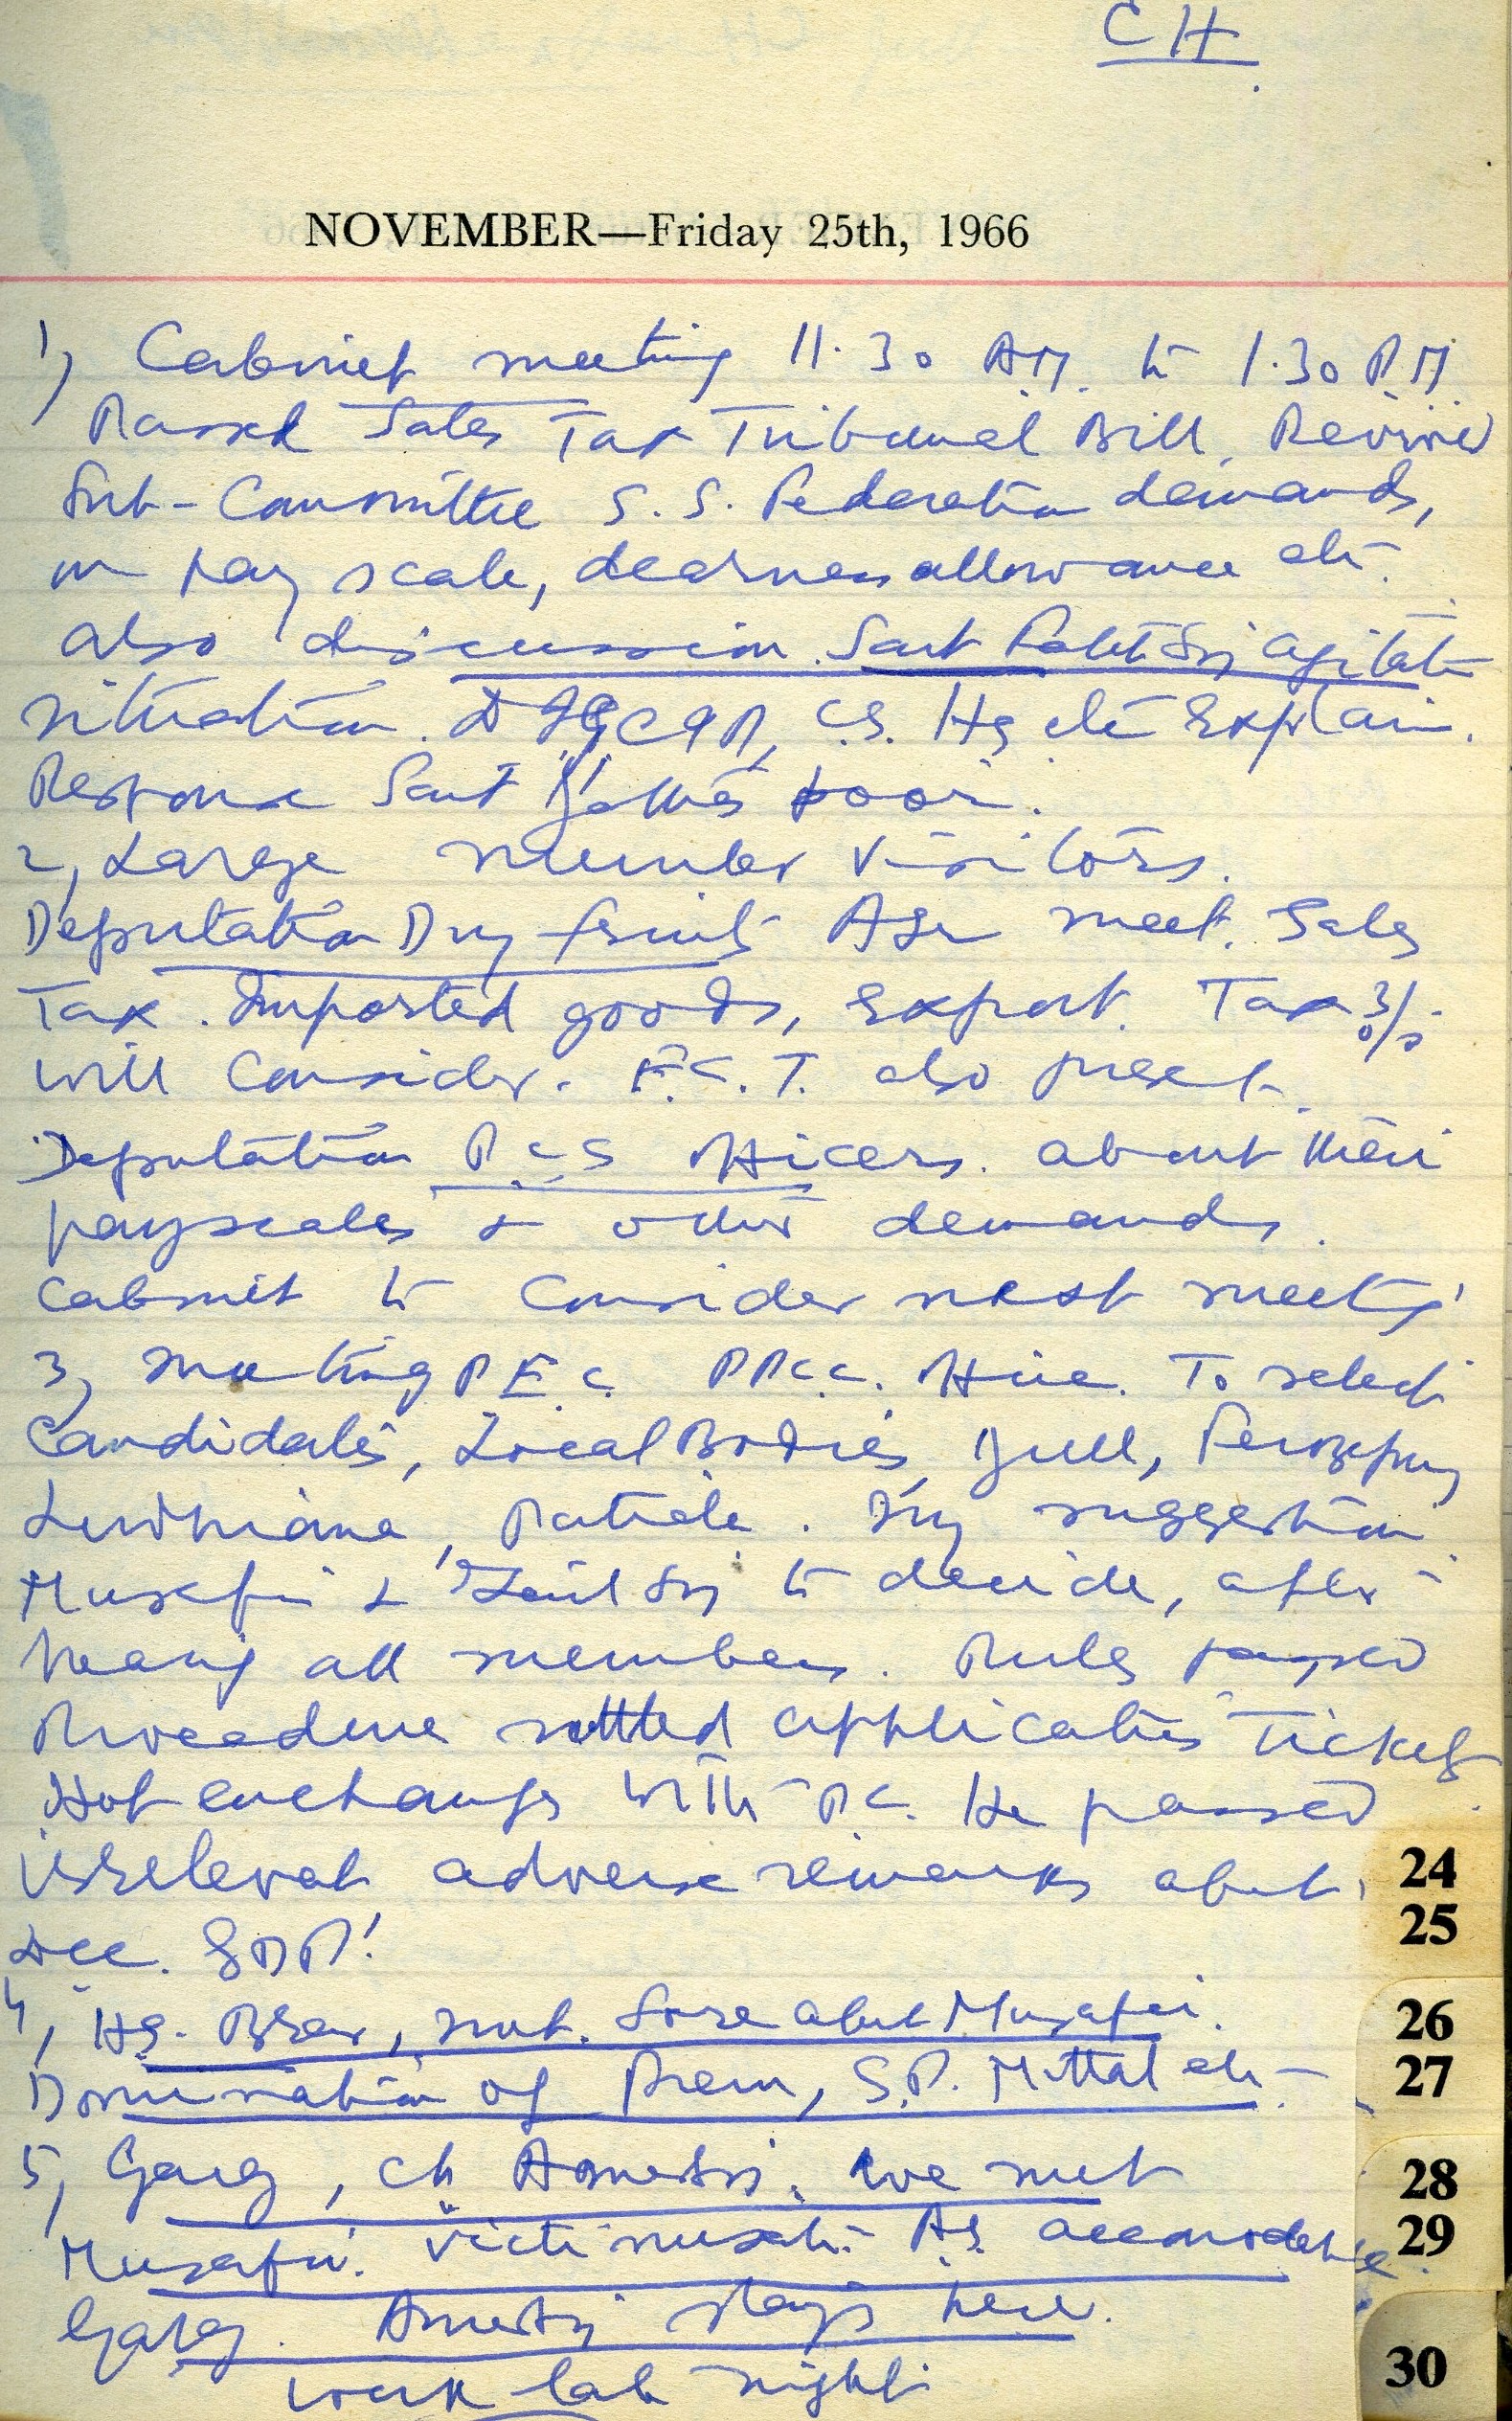 CH
NOVEMBER—Friday 25th, 1966
1) Cabinet meeting 11.30 A.M. to 1.30 P.M.
Passed Sales Tax Tribunal Bill.
Sub-Committee S.S. Federation demands,
on pay scale, dearness allowance etc.
also discussion Sant Fateh Sin agitatn
situation. DIG CID, C.S. Hs etc explain.
Response Sant Jathas poor.
2, Large number visitors.
Deputation Dry fruits Assn meet. Sales
Tax. Imported goods, export. Tax 3%
will consider. F.C.T. also present.
Deputation PCS officers. about their
payscales & other demands.
Cabinet to consider next meetg
3, meeting P.E.C. PPCC. office. To select
Candidates, Local Bodies, Jull, Ferozepur,
Ludhiana, Patiala. My suggestion.
Musafir & Zail Sin to decide, after
hearing all members. Rules passed
Proceedure settled applicatis tickets
Hot enchangs with P.C. He passed
irrelevat adverse remarks abut
Dec.
4, Hs. Brar, met. Sore abut Musafir.
Domination of Prem, S.P. Mittal etc.
5, Garg, Ch Amersin. we met
Musafir. Victimisatn. As accomodate
Garg. Amersin stays here.
work late night
24
25
26
27
28
29
30